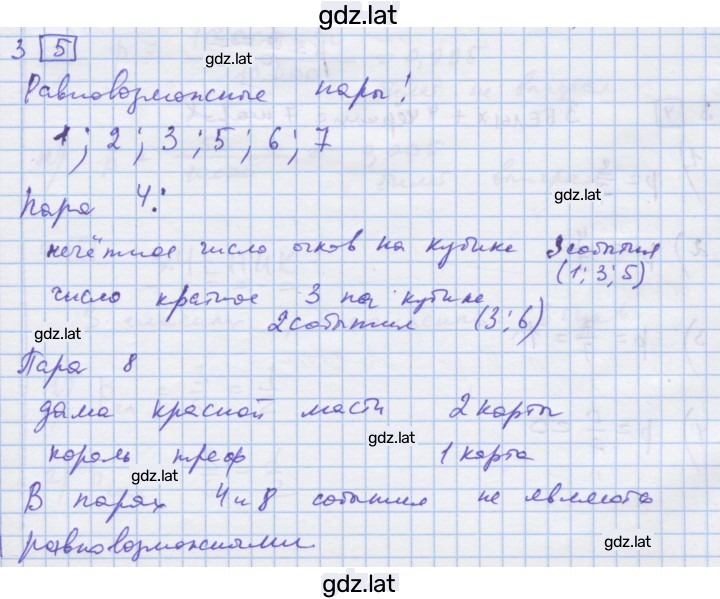 gdz.lat
3 5
gdz.lat
Равновозможные пары!
1; 2; 3; 5; 6; 7
gdz.lat
Пара 4:
нечётное число очков на кубике 3 события
(1; 3; 5)
число кратное 3 на кубике
2 события (3; 6)
gdz.lat
Пара 8
дама красной масти 2 карты
gdz.lat
король треф 1 карта
gdz.lat
В парах 4 и 8 события не являются
равновозможными
gdz.lat
gdz.lat